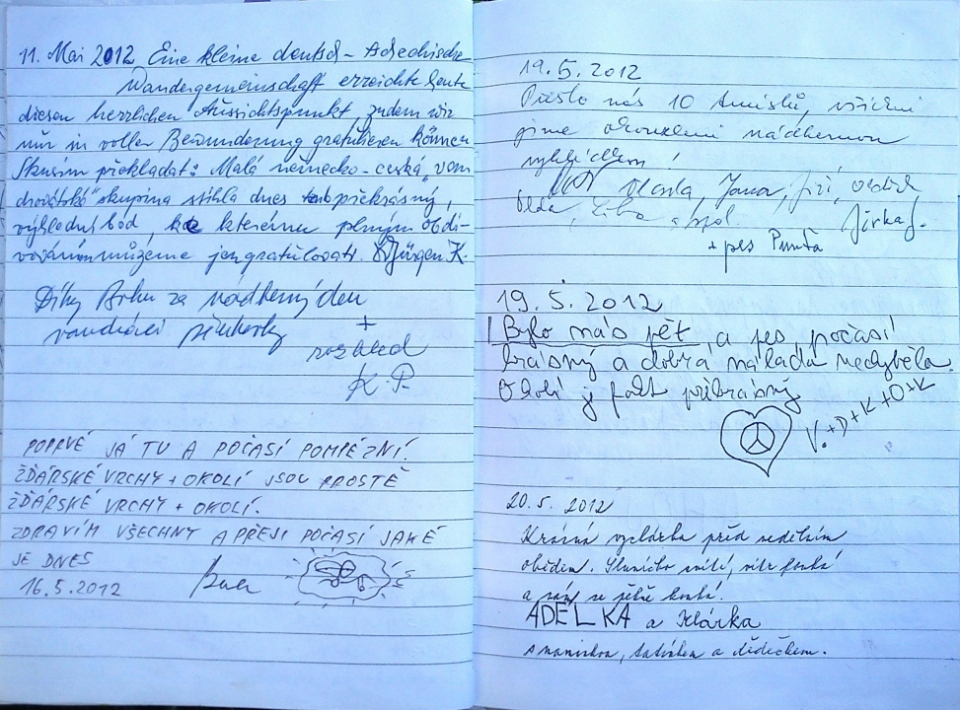 11. Mai 2012 Eine kleine deutsch-tschechische
Wandergemeinschaft erreichte heute
diesen herrlichen Aussichtspunkt, zudem wir
nur in voller Bewunderung gratulieren können
Skusím překládat: Malá německo-česká „van
drovátská" skupina stihla dnes překrásný,
výhlední bod, ke kterému plným obdi-
vováním můžeme jen gratulovati. Jürgen K.
Díky Bohu za nádherný den
vandráci +
rozhled
K. P.
POPRVÉ JÁ TU A POČASÍ POMPÉZNÍ.
ŽĎÁRSKÉ VRCHY + OKOLÍ JSOU PROSTĚ
ŽĎÁRSKÉ VRCHY + OKOLÍ.
ZDRAVÍM VŠECHNY A PŘEJI POČASÍ JAKÉ
JE DNES
16.5.2012
19.5.2012
Přišlo nás 10 turistů, všichni
jsme okouzleni nádhernou
vyhlídkou!
Vlasta, Jana, Jiří,
Liba a spol. Jirka J.
+ pes Punťa
19.5.2012
Bylo nás pět, a pes, počasí
krásný a dobrá nálada nechyběla.
Okolí j fakt překrásný
V.+D+K+O+K
20.5.2012
Krásná vycházka před nedělním
obědem. Sluníčko svítí, vítr fouká
a nám se ještě kouká.
ADÉLKA a Klárka
s maminkou, tatínkem a dědečkem.